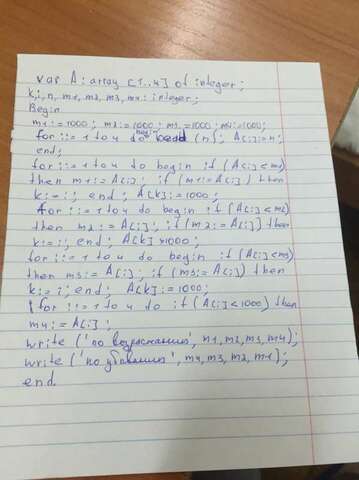 var A: array [1..4] of integer;
k,i,n, m1, m2, m3, m4: integer;
Begin
m1:=1000; m2:=1000; m3:=1000; m4:=1000;
for i:=1 to 4 do begin read (n); A[i]:=n;
end;
for i:=1 to 4 do begin if (A[i]<m1)
then m1:=A[i]; if (m1:=A[i]) then
k:=i; end; A[k]:=1000;
for i:=1 to 4 do begin if (A[i]<m2)
then m2:=A[i]; if (m2:=A[i]) then
k:=i; end; A[k]:=1000;
for i:=1 to 4 do begin if (A[i]<m3)
then m3:=A[i]; if (m3:=A[i]) then
k:=i; end; A[k]:=1000;
for i:=1 to 4 do if (A[i]<1000) then
m4:=A[i];
write ('по возрастанию', m1,m2,m3,m4);
write ('по убыванию', m4,m3,m2,m1);
end.